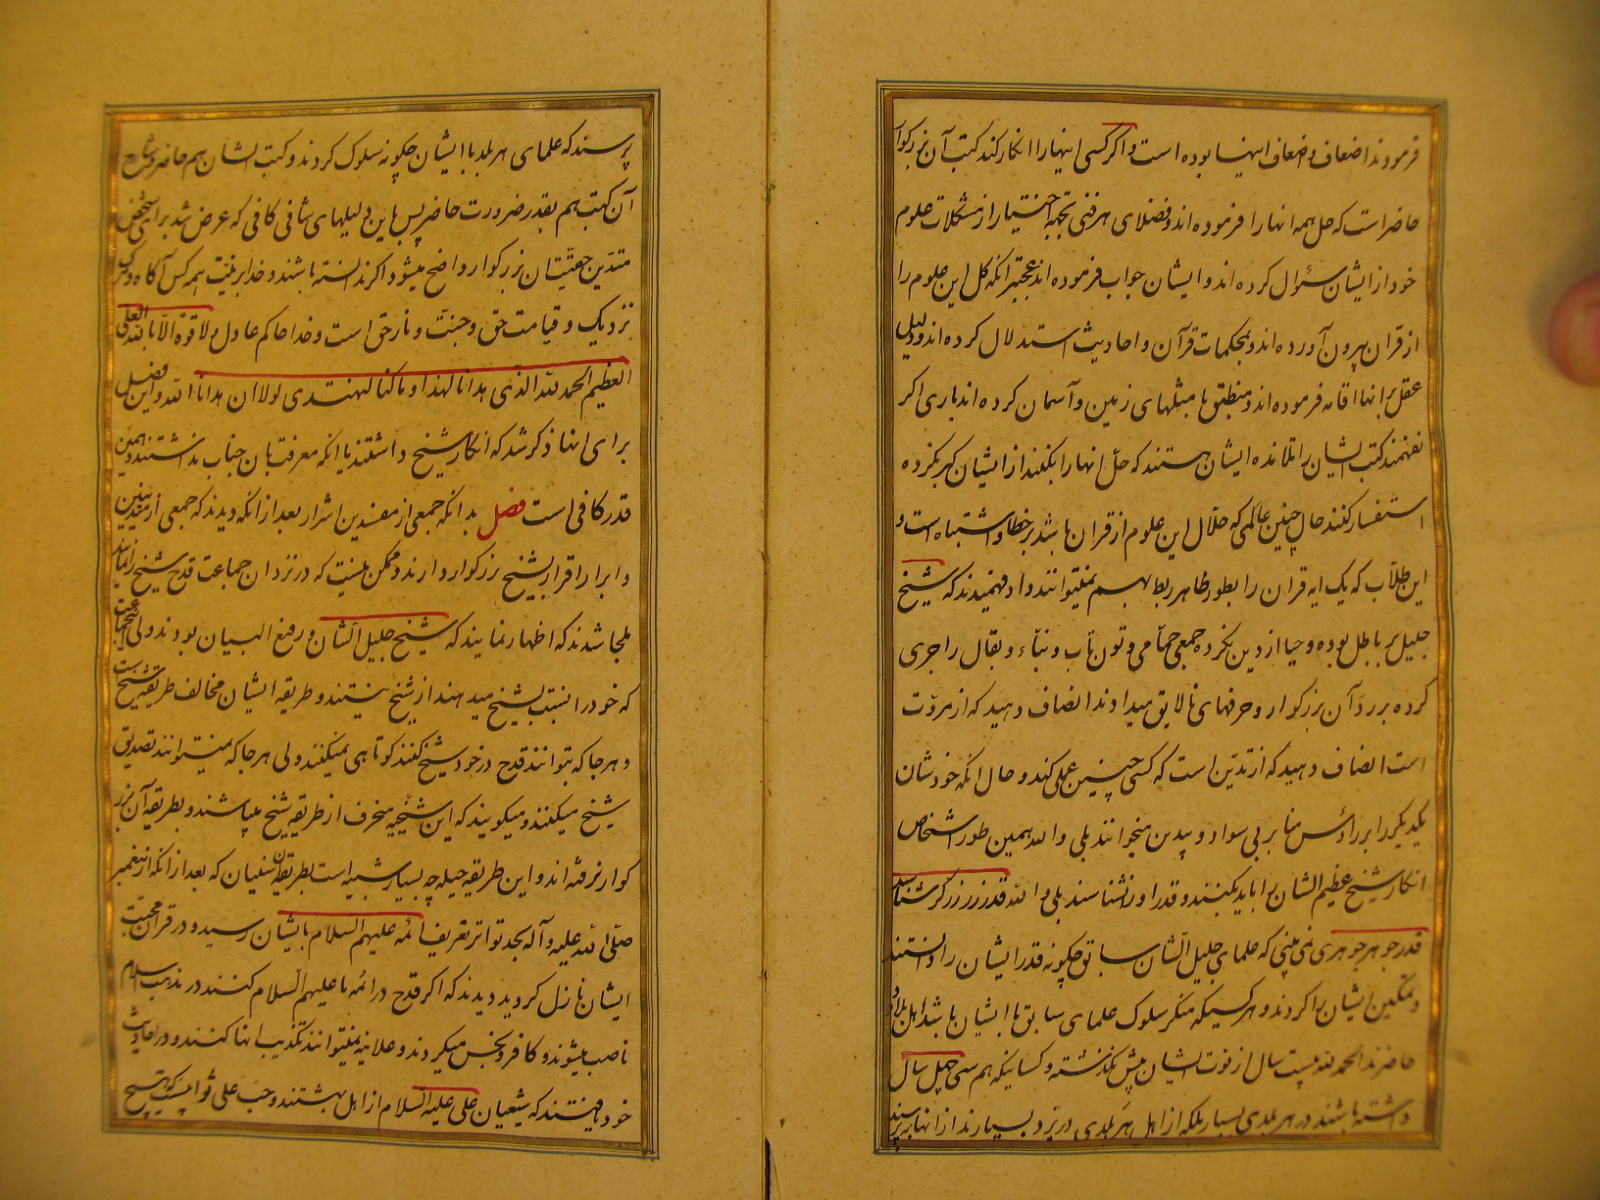 فرمودند اضعاف و ضعاف اینها بوده است و اگر کسی اینها را انکار کند کتب آن بزرکوار
حاضر است که حل همه انها را فرموده اند و فضلای هر فنی بجهة اختبار از مشکلات علوم
خود از ایشان سؤال کرده اند و ایشان جواب فرموده اند عجبتر انکه کل این علوم را
از قران بیرون آورده اند و بمحکمات قرآن و احادیث استدلال کرده اند و دلیل
عقل بر انها اقامه فرموده اند و منطبق با مثلهای زمین و آسمان کرده اند باری اکر
نفهمند کتب ایشان را تلامذه ایشان هستند که حلّ انها را بکنند از ایشان که بکرده
استفسار کنند حال چنین عالمی که حلّال این علوم از قران باشد بر خطا و اشتباه است و
این طلّاب که یک ایه قران را بطور ظاهر ربط بهم نمیتوانند داد فهمیدند که شیخ
جلیل بر باطل بوده و حیا از دین نکرده جمعی حمّامی و تون تاب و بنّاء و بقال را جری
کرده بر ردّ آن بزرکوار و حرفهای نالایق میدادند انصاف دهید که از مروّت
است انصاف دهید که از تدیّن است که کسی چنین عملی کند و حال انکه خودشان
یکدیکر را بر رؤس منابر بی سواد و بیدین میخوانند بلی والله همین طور اشخاص
انکار شیخ عظیم الشان را باید بکنند و قدر او را نشناسند بلی والله قدر زر زرکر شناسد
قدر جوهر جوهری نمی بینی که علمای جلیل الشان سابق چکونه قدر ایشان را دانستند
و تمکین ایشان را کردند و هر کسیکه منکر سلوک علمای سابق با ایشان باشد اهل بلاد
حاضرند الحمد لله بیست سال از فوت ایشان بیش نکذشته و کسانیکه هم سی چهل سال
داشته باشند در هر بلدی بسیار بلکه از اهل هر بلدی در یزد بسیارند از انها بپرسند
پرسند که علمای هر بلد با ایشان چکونه سلوک کردند و کتب ایشان هم حاضر و شارح
آن کتب هم بقدر ضرورت حاضر پس باین دلیلهای شافی کافی که عرض شد برای شخص
متدیّن حقیّت ان بزرکوار واضح میشود اکر ندانسته باشند و خدا بر نیّت همه کس آکاه و مرک
نزدیک و قیامت حق و جنّت و نار حق است و خدا حاکم عادل و لا قوة الّا بالله العلی
العظیم الحمد لله الذی هدانا لهذا و ما کنا لنهتدی لولا ان هدانا الله و این فصل
برای انها ذکر شد که انکار شیخ داشتند یا انکه معرفت بان جناب نداشتند و همین
قدر کافی است فصل بدانکه جمعی از مفسدین اشرار بعد از انکه دیدند که جمعی از متدینین
و ابرار اقرار بشیخ بزرکوار دارند و ممکن نیست که در نزد ان جماعت قدح شیخ را نمایند
ملجا شدند که اظهار نمایند که شیخ جلیل الشان و رفیع البیان بودند ولی این جماعت
که خود را نسبت بشیخ میدهند از شیخ نیستند و طریقه ایشان مخالف طریقه شیخ است
و هر جا که بتوانند قدح در خود شیخ کنند کوتاهی نمیکنند ولی هر جا که نمیتوانند تصدیق
شیخ میکنند و میکویند که این شیخیه منحرف از طریقه شیخ میباشند و بطریقه آن بزر
کوار نرفته اند و این طریقه حیله چه بسیار شبیه است بطریقه سنیان که بعد از انکه از پیغمبر
صلّی الله علیه و آله بحد تواتر تعریف ائمه علیهم السلام بایشان رسید و در قران محبّت
ایشان نازل کردید دیدند که اکر قدح در ائمه ما علیهم السلام کنند در مذهب اسلام
ناصب میشوند و کافر و نجس میکردند و علانیه نمیتوانند تکذیب انها کنند و در احادیث
خود یافتند که شیعیان علی علیه السلام از اهل بهشتند و حب علی ثوابیست که هیچ